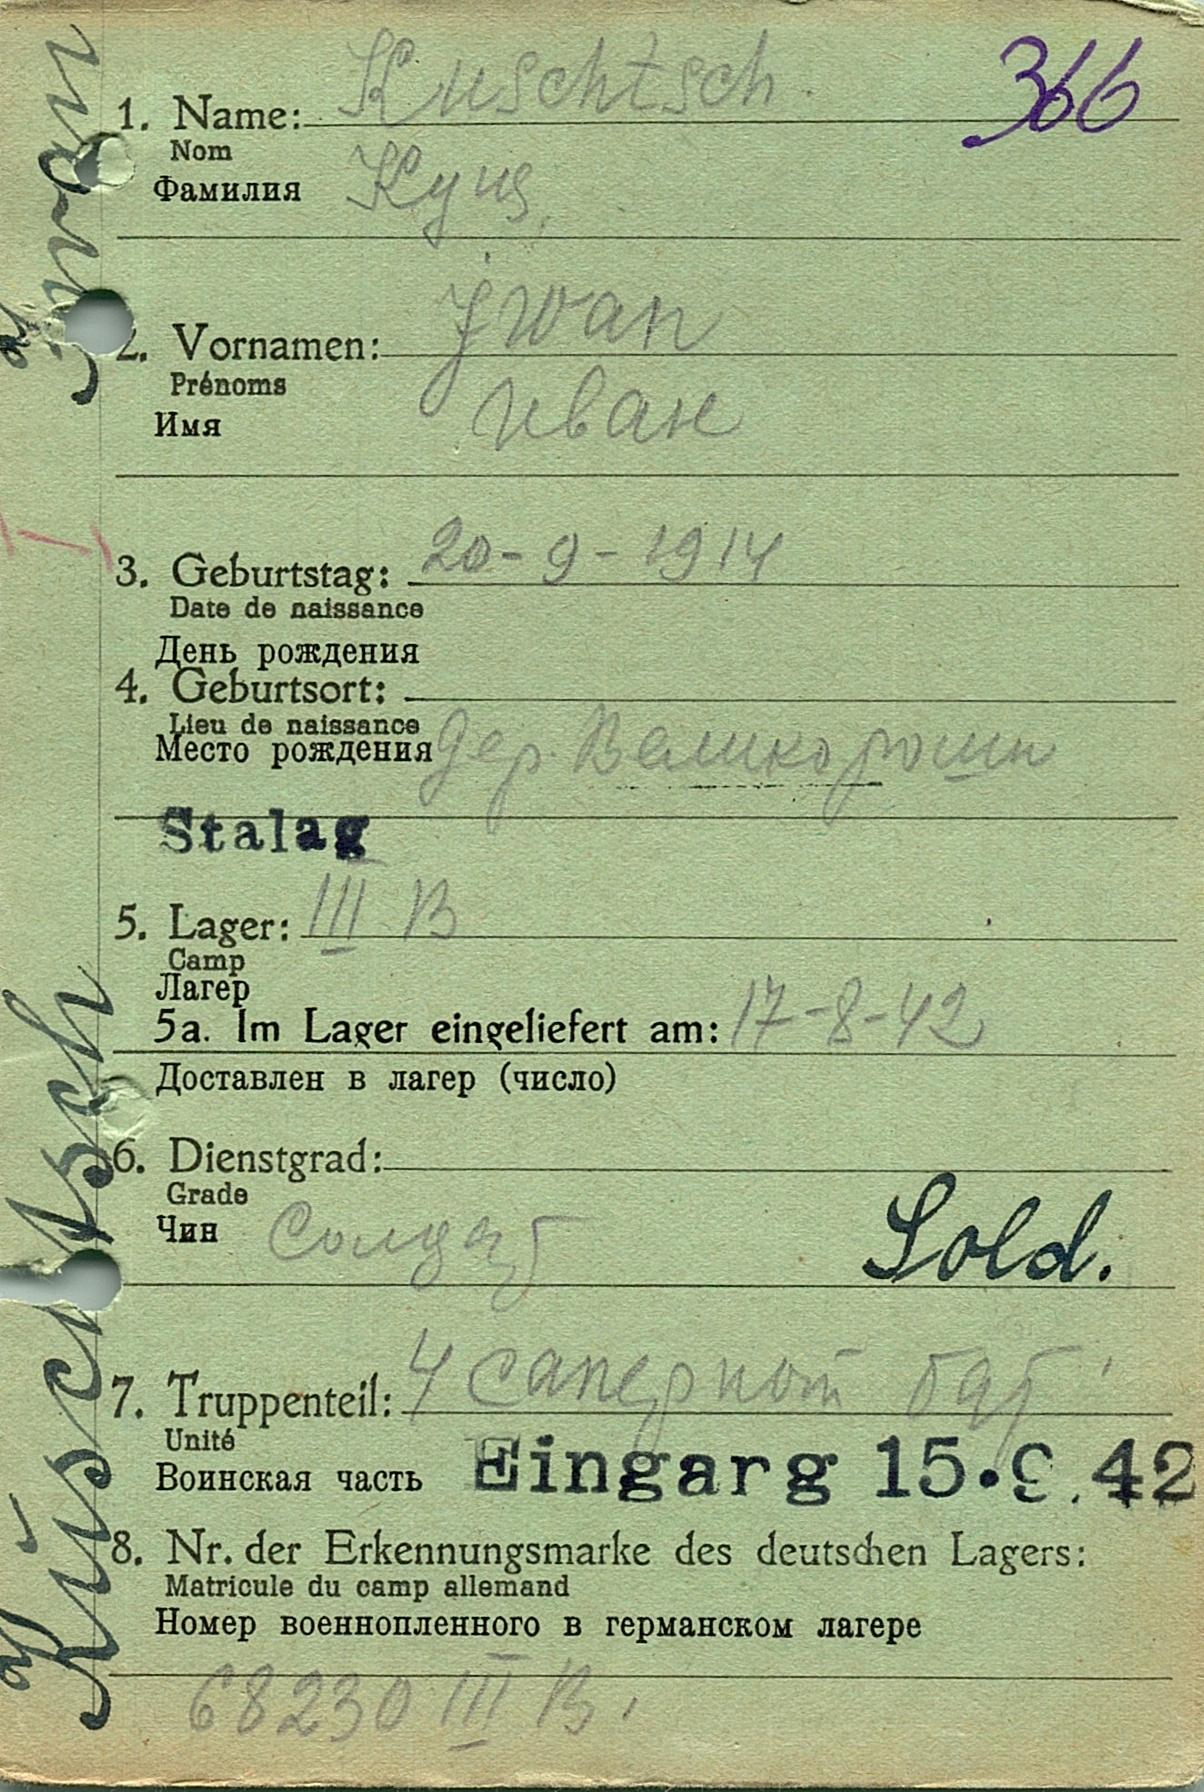 366
1. Name: Kuschtsch.
Nom
Фамилия Кущ
2. Vornamen: Jwan
Prénoms
Имя Иван
3. Geburtstag: 20-9-1914
Date de naissance
День рождения
4. Geburtsort:
Lieu de naissance
Место рождения дер. Великорошн
Stalag
5. Lager: III B
Camp
Лагер
5a. Im Lager eingeliefert am: 17-8-42
Доставлен в лагер (число)
6. Dienstgrad:
Grade
Чин солдат Sold.
7. Truppenteil: 4 саперной бат
Unité
Воинская часть Eingarg 15.9.42
8. Nr. der Erkennungsmarke des deutschen Lagers:
Matricule du camp allemand
Номер военнопленного в германском лагере
68230 III B.
Kuschtsch Jwan